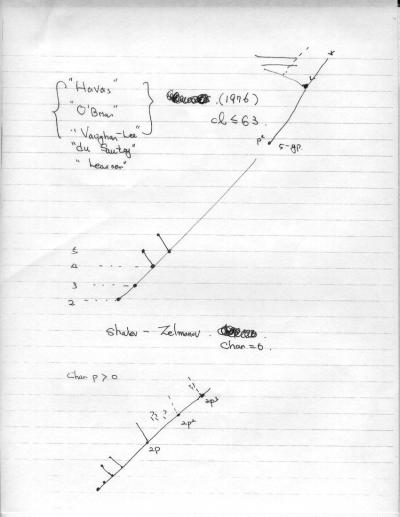 "Havas"
"O'Brien"
"Vaughan-Lee"
"du Sautoy"
"Leedham"
(1976)
cl ≤ 63.
x
p²
5-gp.
5
4
3
2
Shalev - Zelmanov.
Char = 0.
Char p > 0
??
2p
2p²
2p³